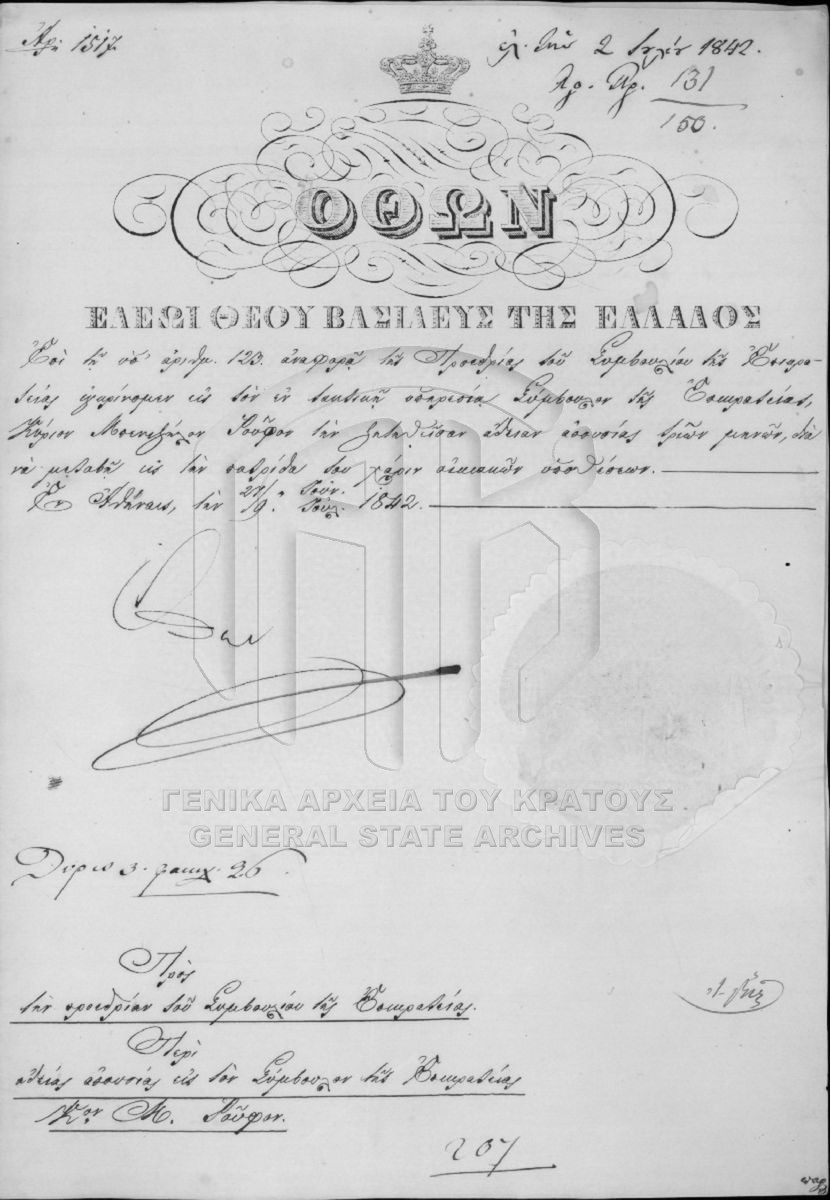 Αρ. 1517.
ἐλ. τὴν 2 Ἰουλίου 1842.
Αρ. Πρ. 131
150.
ΟΘΩΝ
ΕΛΕΩΙ ΘΕΟΥ ΒΑΣΙΛΕΥΣ ΤΗΣ ΕΛΛΑΔΟΣ
Ἐπὶ τῇ ὑπ' ἀριθμ. 123. ἀναφορᾷ τῆς Προεδρίας τοῦ Συμβουλίου τῆς Ἐπικρα-
τείας ἐγκρίνομεν εἰς τὸν ἐν τακτικῇ ὑπηρεσίᾳ Σύμβουλον τῆς Ἐπικρατείας,
Κύριον Μπενιζέλον Ῥοῦφον τὴν ζητηθεῖσαν ἄδειαν ἀπουσίας τριῶν μηνῶν, διὰ
νὰ μεταβῇ εἰς τὴν πατρίδα του χάριν οἰκιακῶν ὑποθέσεων.
Ἐν Ἀθήναις, τὴν 27/9 Ἰουν. Ἰουλ. 1842.
ΓΕΝΙΚΑ ΑΡΧΕΙΑ ΤΟΥ ΚΡΑΤΟΥΣ
GENERAL STATE ARCHIVES
3. 26
Πρὸς
τὴν προεδρίαν τοῦ Συμβουλίου τῆς Ἐπικρατείας.
Περὶ
ἀδείας ἀπουσίας εἰς τὸν Σύμβουλον τῆς Ἐπικρατείας
Κον Μ. Ῥοῦφον.
207